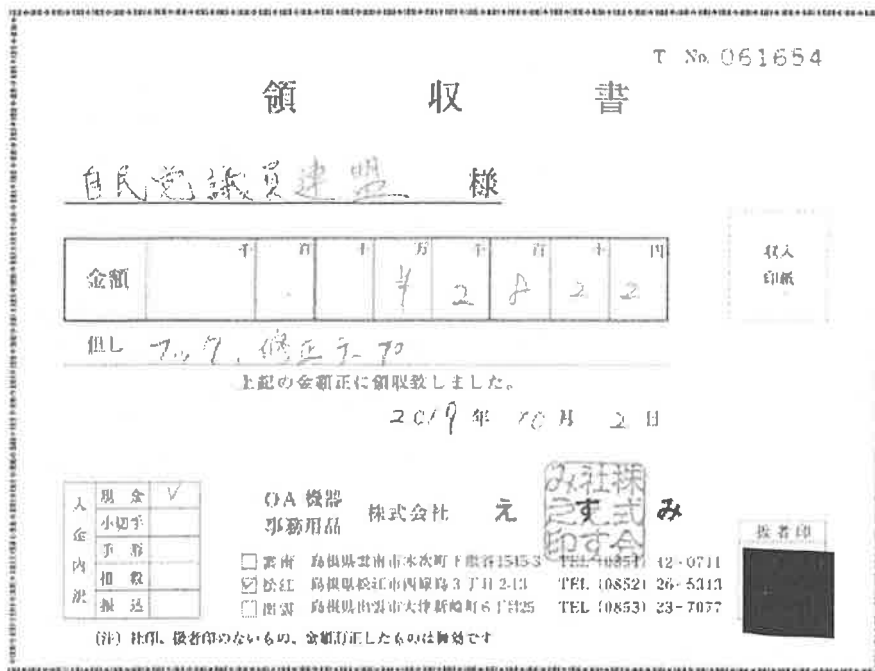 T No. 061654
領収書
自民党議員連盟 様
金額 千 百 十 万 千 百 十 円
¥ 2 8 2 2
収入
印紙
但し フック、修正テープ
上記の金額正に領収致しました。
2019年 10月 2日
入金内訳
現金 V
小切手
手形
相殺
振込
OA機器
事務用品
株式会社 えすみ
株式会社えすみ之印
□ 雲南 島根県雲南市木次町下熊谷1545-3 TEL (0854) 42-0711
☑ 松江 島根県松江市西嫁島3丁目2-13 TEL (0852) 26-5313
□ 出雲 島根県出雲市大津新崎町6丁目25 TEL (0853) 23-7077
扱者印
(注) 社印、扱者印のないもの、金額訂正したものは無効です